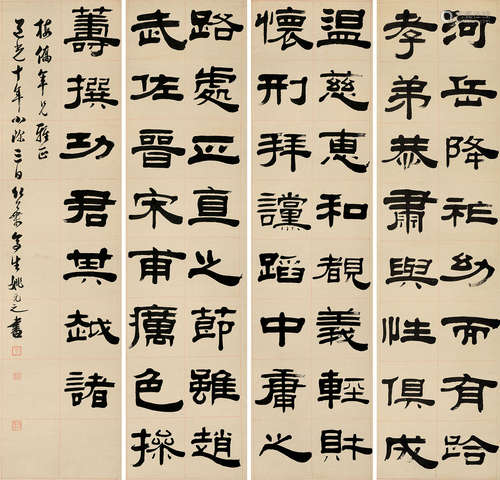 河岳降祉幼而有
孝弟恭肅與性俱成
溫慈惠和覩義輕財
懷刑拜讜蹈中庸之
路處正直之節雖趙
武佐晉宋甫厲色操
籌撰功君其越諸
年兄雅正
道光十年小除三日竹葉亭生姚元之書